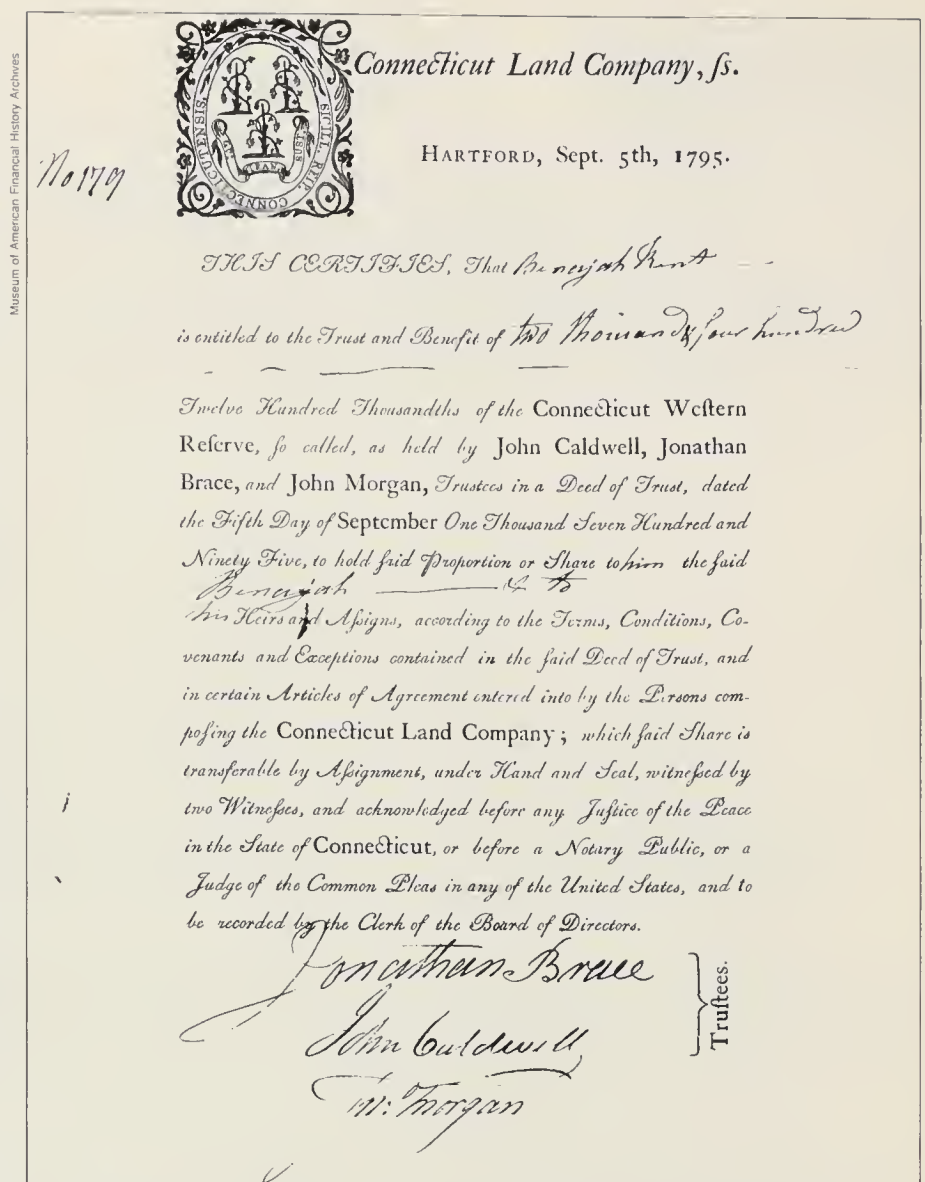 Museum of American Financial History Archives
Connecticut Land Company, ſs.
HARTFORD, Sept. 5th, 1795.
No 179
SIGILL. REIP. CONNECTICUTENSIS.
QUI TRAN SUST
THIS CERTIFIES, That Benajah Kent
is entitled to the Trust and Benefit of two thousand & four hundred
Twelve Hundred Thousandths of the Connecticut Weſtern
Reſerve, ſo called, as held by John Caldwell, Jonathan
Brace, and John Morgan, Trustees in a Deed of Trust, dated
the Fifth Day of September One Thousand Seven Hundred and
Ninety Five, to hold ſaid Proportion or Share to him the ſaid
Benajah & to
his Heirs and Aſsigns, according to the Terms, Conditions, Co-
venants and Exceptions contained in the ſaid Deed of Trust, and
in certain Articles of Agreement entered into by the Persons com-
poſing the Connecticut Land Company; which ſaid Share is
transferable by Aſsignment, under Hand and Seal, witneſsed by
two Witneſses, and acknowledged before any Justice of the Peace
in the State of Connecticut, or before a Notary Public, or a
Judge of the Common Pleas in any of the United States, and to
be recorded by the Clerk of the Board of Directors.
Jonathan Brace
John Caldwell
Morgan
Truſtees.